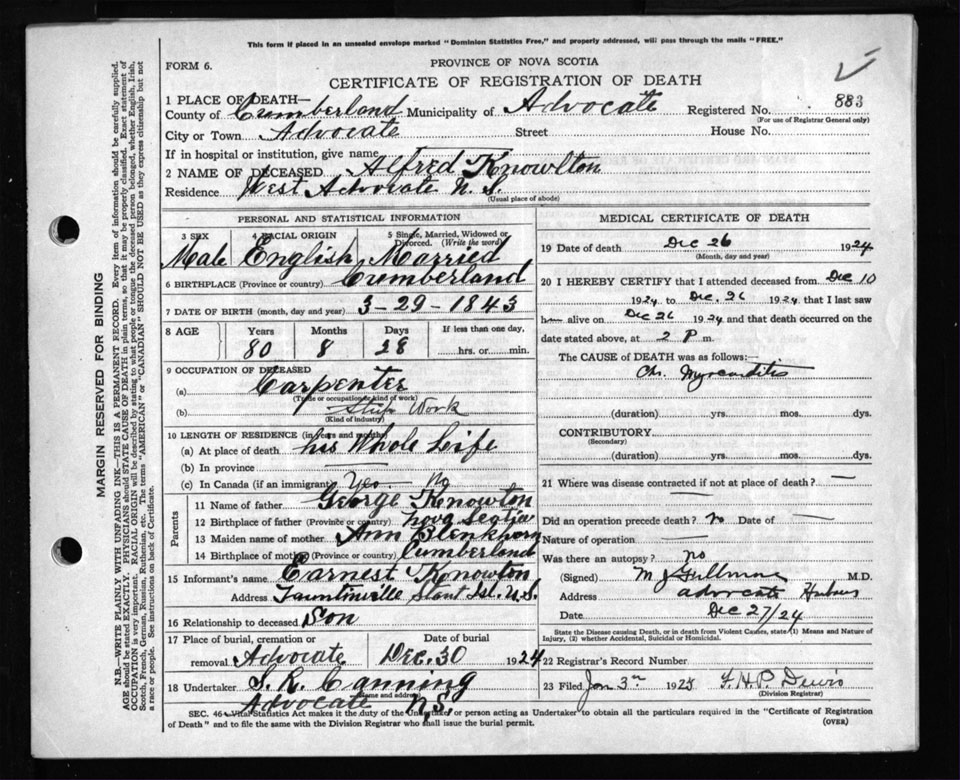 This form if placed in an unsealed envelope marked "Dominion Statistics Free," and properly addressed, will pass through the mails "FREE."
FORM 6.
PROVINCE OF NOVA SCOTIA
CERTIFICATE OF REGISTRATION OF DEATH
1 PLACE OF DEATH—
County of Cumberland Municipality of Advocate Registered No. 883
(For use of Registrar General only)
City or Town Advocate Street House No.
If in hospital or institution, give name
2 NAME OF DECEASED Alfred Knowlton
Residence West Advocate N.S.
(Usual place of abode)
PERSONAL AND STATISTICAL INFORMATION
3 SEX 4 RACIAL ORIGIN 5 Single, Married, Widowed or Divorced. (Write the word)
Male English Married
6 BIRTHPLACE (Province or country) Cumberland
7 DATE OF BIRTH (month, day and year) 3-29-1843
8 AGE Years Months Days If less than one day,
80 8 28 hrs. or min.
9 OCCUPATION OF DECEASED
(a) Carpenter
(Trade or occupation or kind of work)
(b) Ship Work
(Kind of industry)
10 LENGTH OF RESIDENCE (in years and months)
(a) At place of death his Whole Life
(b) In province —
(c) In Canada (if an immigrant) Yes — No
Parents
11 Name of father George Knowton
12 Birthplace of father (Province or country) Nova Scotia
13 Maiden name of mother Ann Blenkhorn
14 Birthplace of mother (Province or country) Cumberland
15 Informant's name Earnest Knowton
Address
16 Relationship to deceased Son
17 Place of burial, cremation or removal Advocate Date of burial Dec. 30 1924
18 Undertaker S. R. Canning
(name and address)
Advocate N.S.
MEDICAL CERTIFICATE OF DEATH
19 Date of death Dec 26 1924
(Month, day and year)
20 I HEREBY CERTIFY that I attended deceased from Dec 10
1924 to Dec. 26 1924 that I last saw
him alive on Dec 26 1924 and that death occurred on
date stated above, at 2 P m.
The CAUSE of DEATH was as follows:
Chr. Myocarditis
(duration) yrs. mos. dys.
CONTRIBUTORY
(Secondary)
(duration) yrs. mos. dys.
21 Where was disease contracted if not at place of death? —
Did an operation precede death? no Date of —
Nature of operation —
Was there an autopsy? no
(Signed) M. D.
Address Advocate Harbour
Date Dec 27/24
State the Disease causing Death, or in death from Violent Causes, state (1) Means and Nature of Injury, (2) whether Accidental, Suicidal or Homicidal.
22 Registrar's Record Number
23 Filed Jan 3rd 1925
(Division Registrar)
SEC. 46—Vital Statistics Act makes it the duty of the Undertaker or person acting as Undertaker to obtain all the particulars required in the "Certificate of Registration
of Death" and to file the same with the Division Registrar who shall issue the burial permit. (OVER)
MARGIN RESERVED FOR BINDING
N.B.—WRITE PLAINLY WITH UNFADING INK—THIS IS A PERMANENT RECORD. Every item of information should be carefully supplied.
AGE should be stated EXACTLY. PHYSICIANS should STATE CAUSE OF DEATH in plain terms, so that it may be properly classified. Exact statement of
OCCUPATION is very important. RACIAL ORIGIN will be described by stating to what people or tongue the deceased person belonged, whether English, Irish,
Scotch, French, German, Russian, Ruthenian, etc. The terms "AMERICAN" or "CANADIAN" SHOULD NOT BE USED as they express citizenship but not
a race or people. See instructions on back of Certificate.